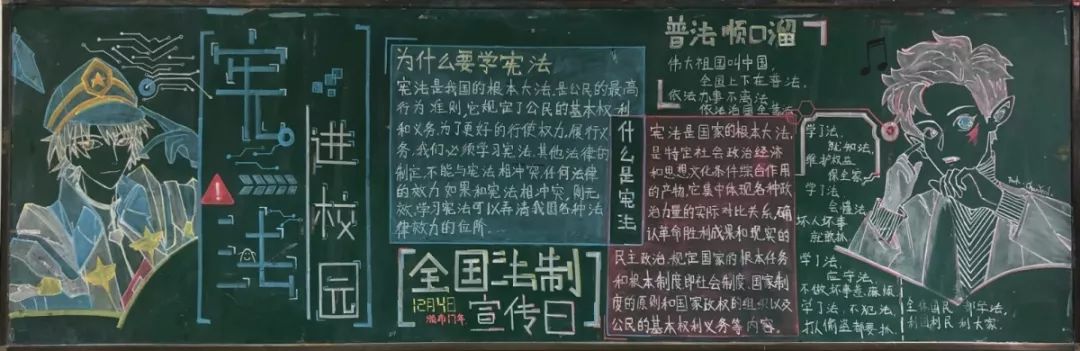 宪法
进校园
为什么要学宪法
宪法是我国的根本大法,是公民的最高
行为准则,它规定了公民的基本权利
和义务,为了更好的行使权力,履行义
务,我们必须学习宪法,其他法律的
制定,不能与宪法相冲突,任何法律
的效力如果和宪法相冲突,则无
效,学习宪法可以弄清我国各种法
律效力的位阶...
全国法制
12月4日
宣传日
什么是宪法
宪法是国家的根本大法,
是特定社会政治经济
和思想文化条件综合作用
的产物,它集中体现各种政
治力量的实际对比关系,确
认革命胜利成果和现实的
民主政治,规定国家的根本任务
和根本制度即社会制度、国家制
度的原则和国家政权的组织以及
公民的基本权利义务等内容.
普法顺口溜
伟大祖国叫中国,
全国上下在普法.
依法办事不离法,
依法治国全靠法
学了法,
就知法,
维护权益
保全家.
学了法,
会懂法,
坏人坏事
就敢抓
学了法,
应守法,
不做坏事是麻烦
学了法,不犯法,
打人偷盗都要抓
全体国民都学法,
利国利民利大家.